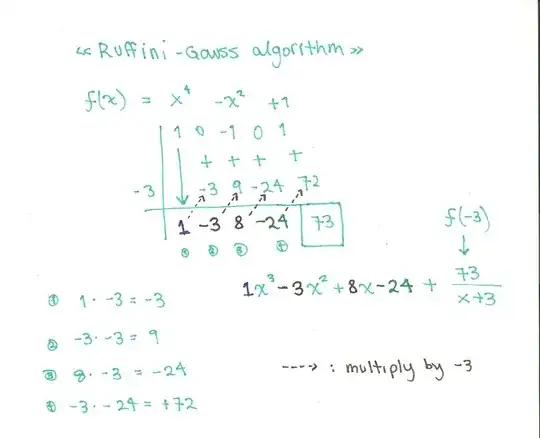 « Ruffini-Gauss algorithm »
f(x) = x⁴ -x² +1
1 0 -1 0 1
+ + + +
-3 -3 9 -24 72
1 -3 8 -24 73
① ② ③ ④
f(-3)
1x³-3x²+8x-24 + 73/x+3
① 1· -3 = -3
② -3· -3 = 9
③ 8· -3 = -24
④ -3· -24 = +72
----> : multiply by -3